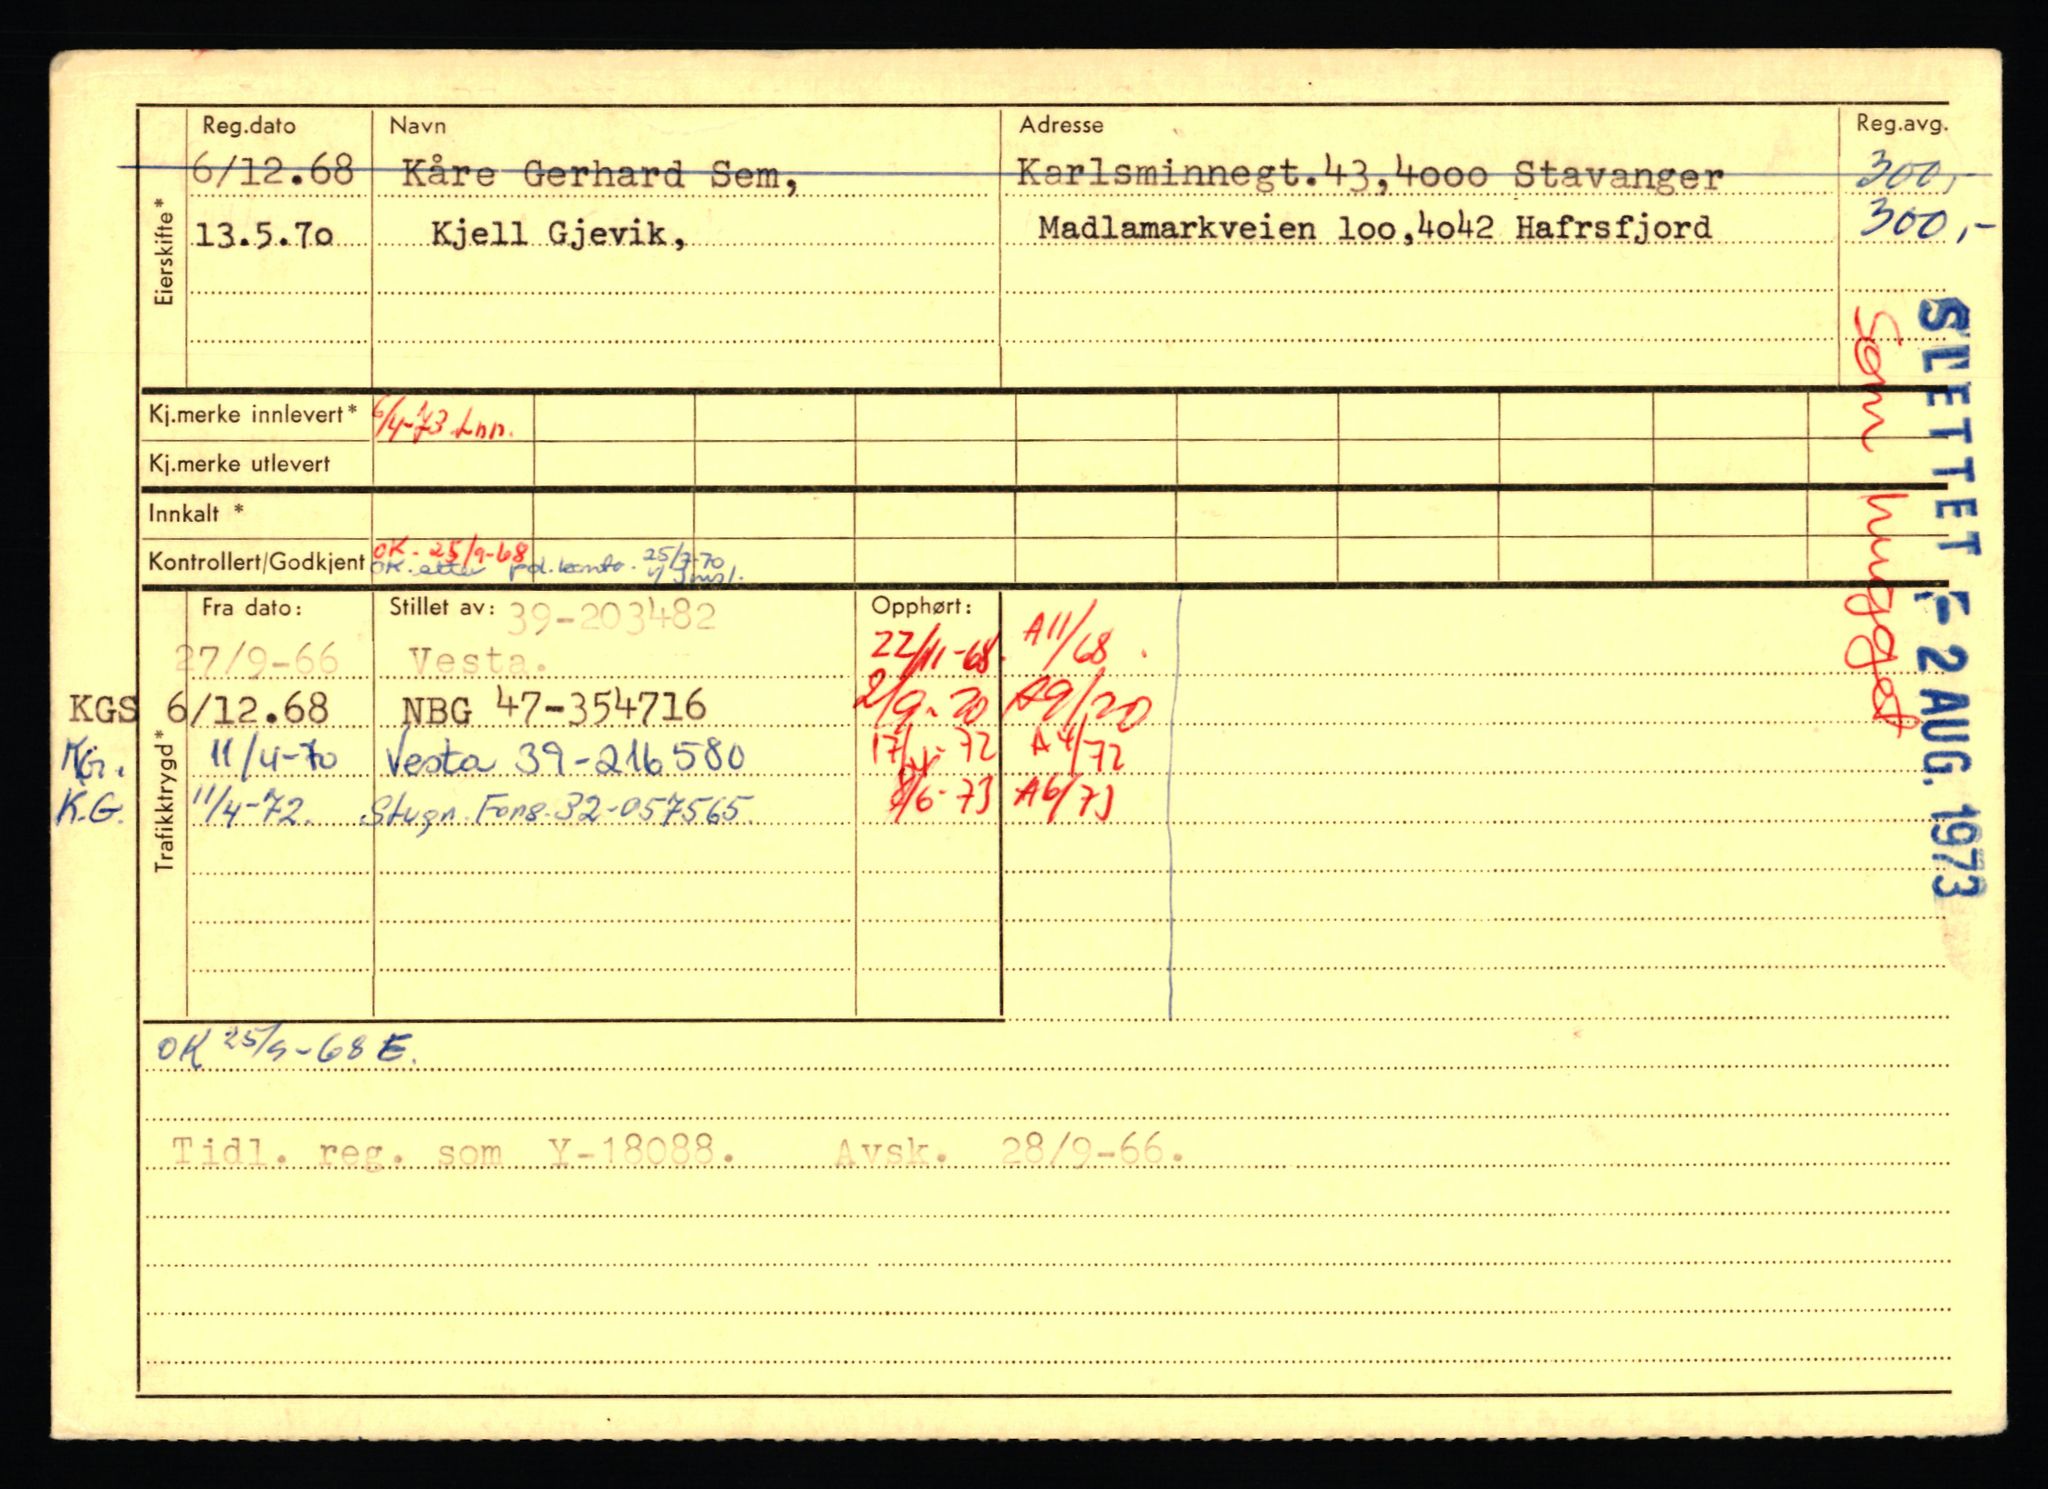 Reg.dato Navn Adresse Reg.avg.
6/12.68 Kåre Gerhard Sem, Karlsminnegt.43,4ooo Stavanger 300,-
13.5.7o Kjell Gjevik, Madlamarkveien loo,4o42 Hafrsfjord 300,-
Eierskifte*
Kj.merke innlevert* 6/4-73
Kj.merke utlevert
Innkalt *
Kontrollert/Godkjent OK - 25/9-68
OK. etter 25/7-70
Fra dato: Stillet av: 39-203482 Opphørt:
27/9-66 Vesta. 22/11-68. A11/68.
KGS 6/12.68 NBG 47-354716 2/9-70 A9/70
KG. 11/4-70 Vesta 39-216580 17/4-72 A4/72
K.G. 11/4-72. 32-057565. 8/6-73 A6/73
Trafikktrygd*
OK 25/9-68 E.
Tidl. reg. som Y-18088. Avsk. 28/9-66.
SLETTET - 2 AUG. 1973
Som hugget